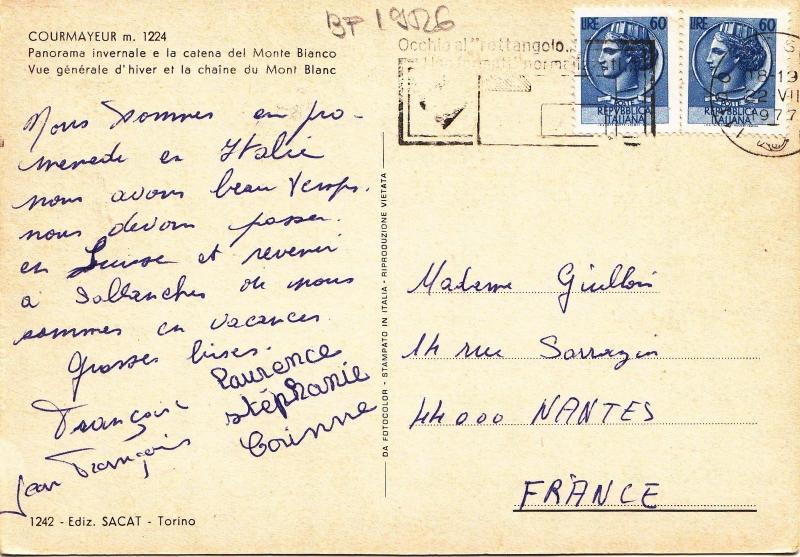 BF 19026
COURMAYEUR m. 1224
Panorama invernale e la catena del Monte Bianco
Vue générale d'hiver et la chaîne du Mont Blanc
Occhio al "rettangolo
LIRE 60
POSTE
REPVBBLICA
ITALIANA
LIRE 60
POSTE
REPVBBLICA
ITALIANA
18-19
22 VII
1977
Nous sommes en pro-
menade en Italie
nous avons beau temps.
nous devons passer
en Suisse et revenir
à Sallanches où nous
sommes en vacances.
Grosses bises.
Laurence
Françoise Stéphanie
Jean François Corinne
DA FOTOCOLOR - STAMPATO IN ITALIA - RIPRODUZIONE VIETATA
Madame
14 rue Sarrazin
44000 NANTES
FRANCE
1242 - Ediz. SACAT - Torino